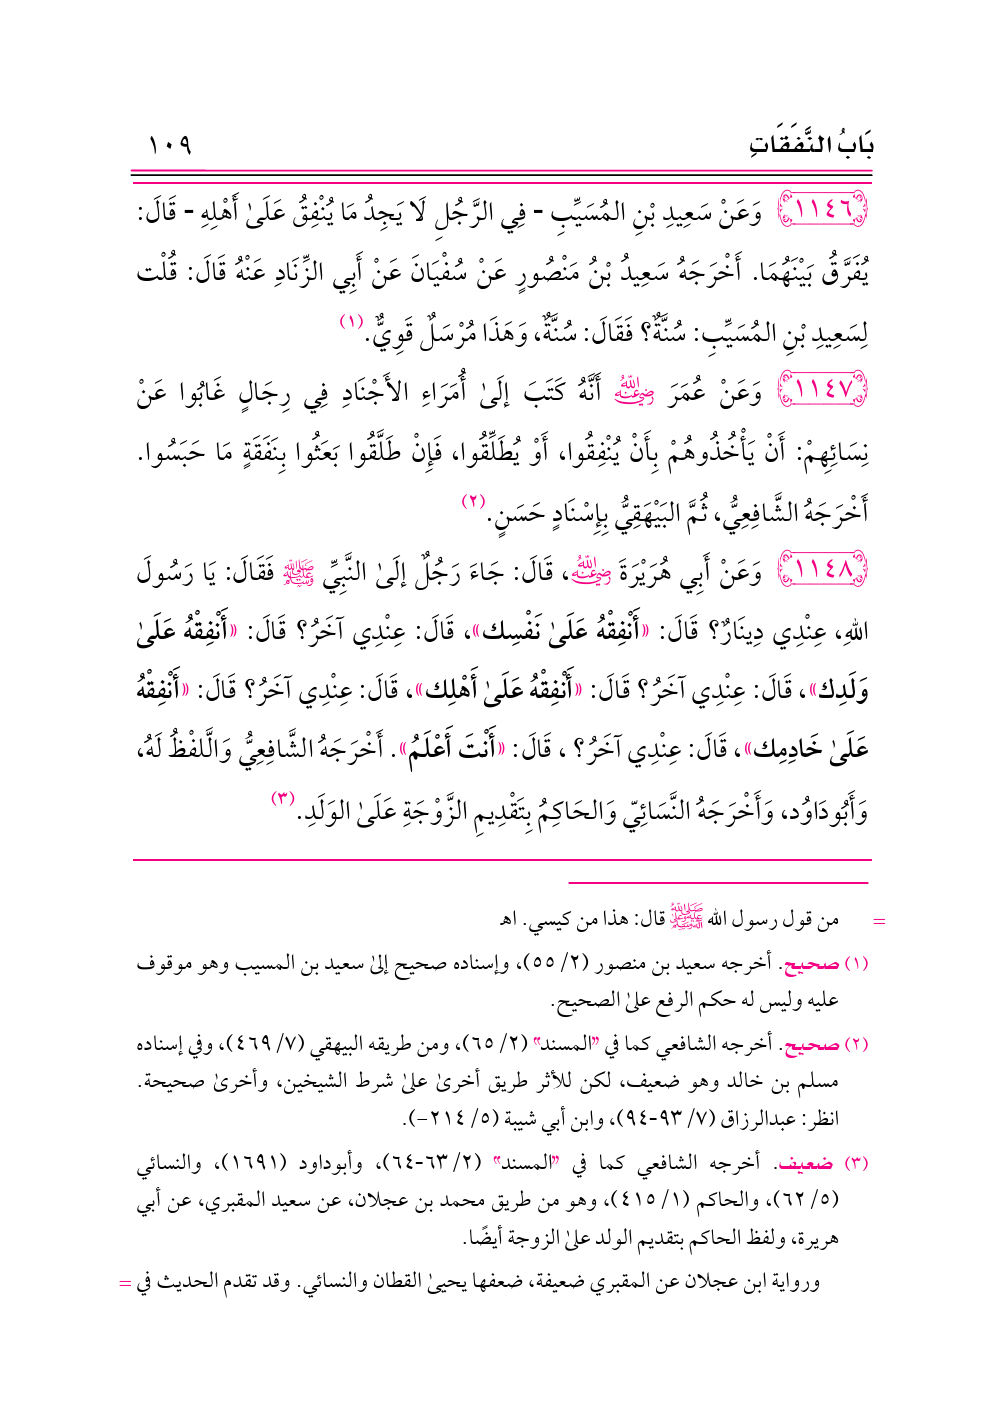 بَابُ النَّفَقَاتِ ١٠٩
١١٤٦ وَعَنْ سَعِيدِ بْنِ المُسَيِّبِ - فِي الرَّجُلِ لَا يَجِدُ مَا يُنْفِقُ عَلَىٰ أَهْلِهِ - قَالَ:
يُفَرَّقُ بَيْنَهُمَا. أَخْرَجَهُ سَعِيدُ بْنُ مَنْصُورٍ عَنْ سُفْيَانَ عَنْ أَبِي الزِّنَادِ عَنْهُ قَالَ: قُلْت
لِسَعِيدِ بْنِ المُسَيِّبِ: سُنَّةٌ؟ فَقَالَ: سُنَّةٌ، وَهَذَا مُرْسَلٌ قَوِيٌّ. (١)
١١٤٧ وَعَنْ عُمَرَ رضي الله عنه أَنَّهُ كَتَبَ إلَىٰ أُمَرَاءِ الأَجْنَادِ فِي رِجَالٍ غَابُوا عَنْ
نِسَائِهِمْ: أَنْ يَأْخُذُوهُمْ بِأَنْ يُنْفِقُوا، أَوْ يُطَلِّقُوا، فَإِنْ طَلَّقُوا بَعَثُوا بِنَفَقَةٍ مَا حَبَسُوا.
أَخْرَجَهُ الشَّافِعِيُّ، ثُمَّ البَيْهَقِيُّ بِإِسْنَادٍ حَسَنٍ. (٢)
١١٤٨ وَعَنْ أَبِي هُرَيْرَةَ رضي الله عنه، قَالَ: جَاءَ رَجُلٌ إلَىٰ النَّبِيِّ ﷺ فَقَالَ: يَا رَسُولَ
اللهِ، عِنْدِي دِينَارٌ؟ قَالَ: «أَنْفِقْهُ عَلَىٰ نَفْسِك»، قَالَ: عِنْدِي آخَرُ؟ قَالَ: «أَنْفِقْهُ عَلَىٰ
وَلَدِك»، قَالَ: عِنْدِي آخَرُ؟ قَالَ: «أَنْفِقْهُ عَلَىٰ أَهْلِك»، قَالَ: عِنْدِي آخَرُ؟ قَالَ: «أَنْفِقْهُ
عَلَىٰ خَادِمِك»، قَالَ: عِنْدِي آخَرُ؟ ، قَالَ: «أَنْتَ أَعْلَمُ». أَخْرَجَهُ الشَّافِعِيُّ وَالَّلفْظُ لَهُ،
وَأَبُودَاوُد، وَأَخْرَجَهُ النَّسَائِيّ وَالحَاكِمُ بِتَقْدِيمِ الزَّوْجَةِ عَلَىٰ الوَلَدِ. (٣)
= من قول رسول الله ﷺ قال: هذا من كيسي. اهـ
(١) صحيح. أخرجه سعيد بن منصور (٢/ ٥٥)، وإسناده صحيح إلىٰ سعيد بن المسيب وهو موقوف
عليه وليس له حكم الرفع علىٰ الصحيح.
(٢) صحيح. أخرجه الشافعي كما في "المسند" (٢/ ٦٥)، ومن طريقه البيهقي (٧/ ٤٦٩)، وفي إسناده
مسلم بن خالد وهو ضعيف، لكن للأثر طريق أخرىٰ علىٰ شرط الشيخين، وأخرىٰ صحيحة.
انظر: عبدالرزاق (٧/ ٩٣-٩٤)، وابن أبي شيبة (٥/ ٢١٤-).
(٣) ضعيف. أخرجه الشافعي كما في "المسند" (٢/ ٦٣-٦٤)، وأبوداود (١٦٩١)، والنسائي
(٥/ ٦٢)، والحاكم (١/ ٤١٥)، وهو من طريق محمد بن عجلان، عن سعيد المقبري، عن أبي
هريرة، ولفظ الحاكم بتقديم الولد علىٰ الزوجة أيضًا.
ورواية ابن عجلان عن المقبري ضعيفة، ضعفها يحيىٰ القطان والنسائي. وقد تقدم الحديث في =